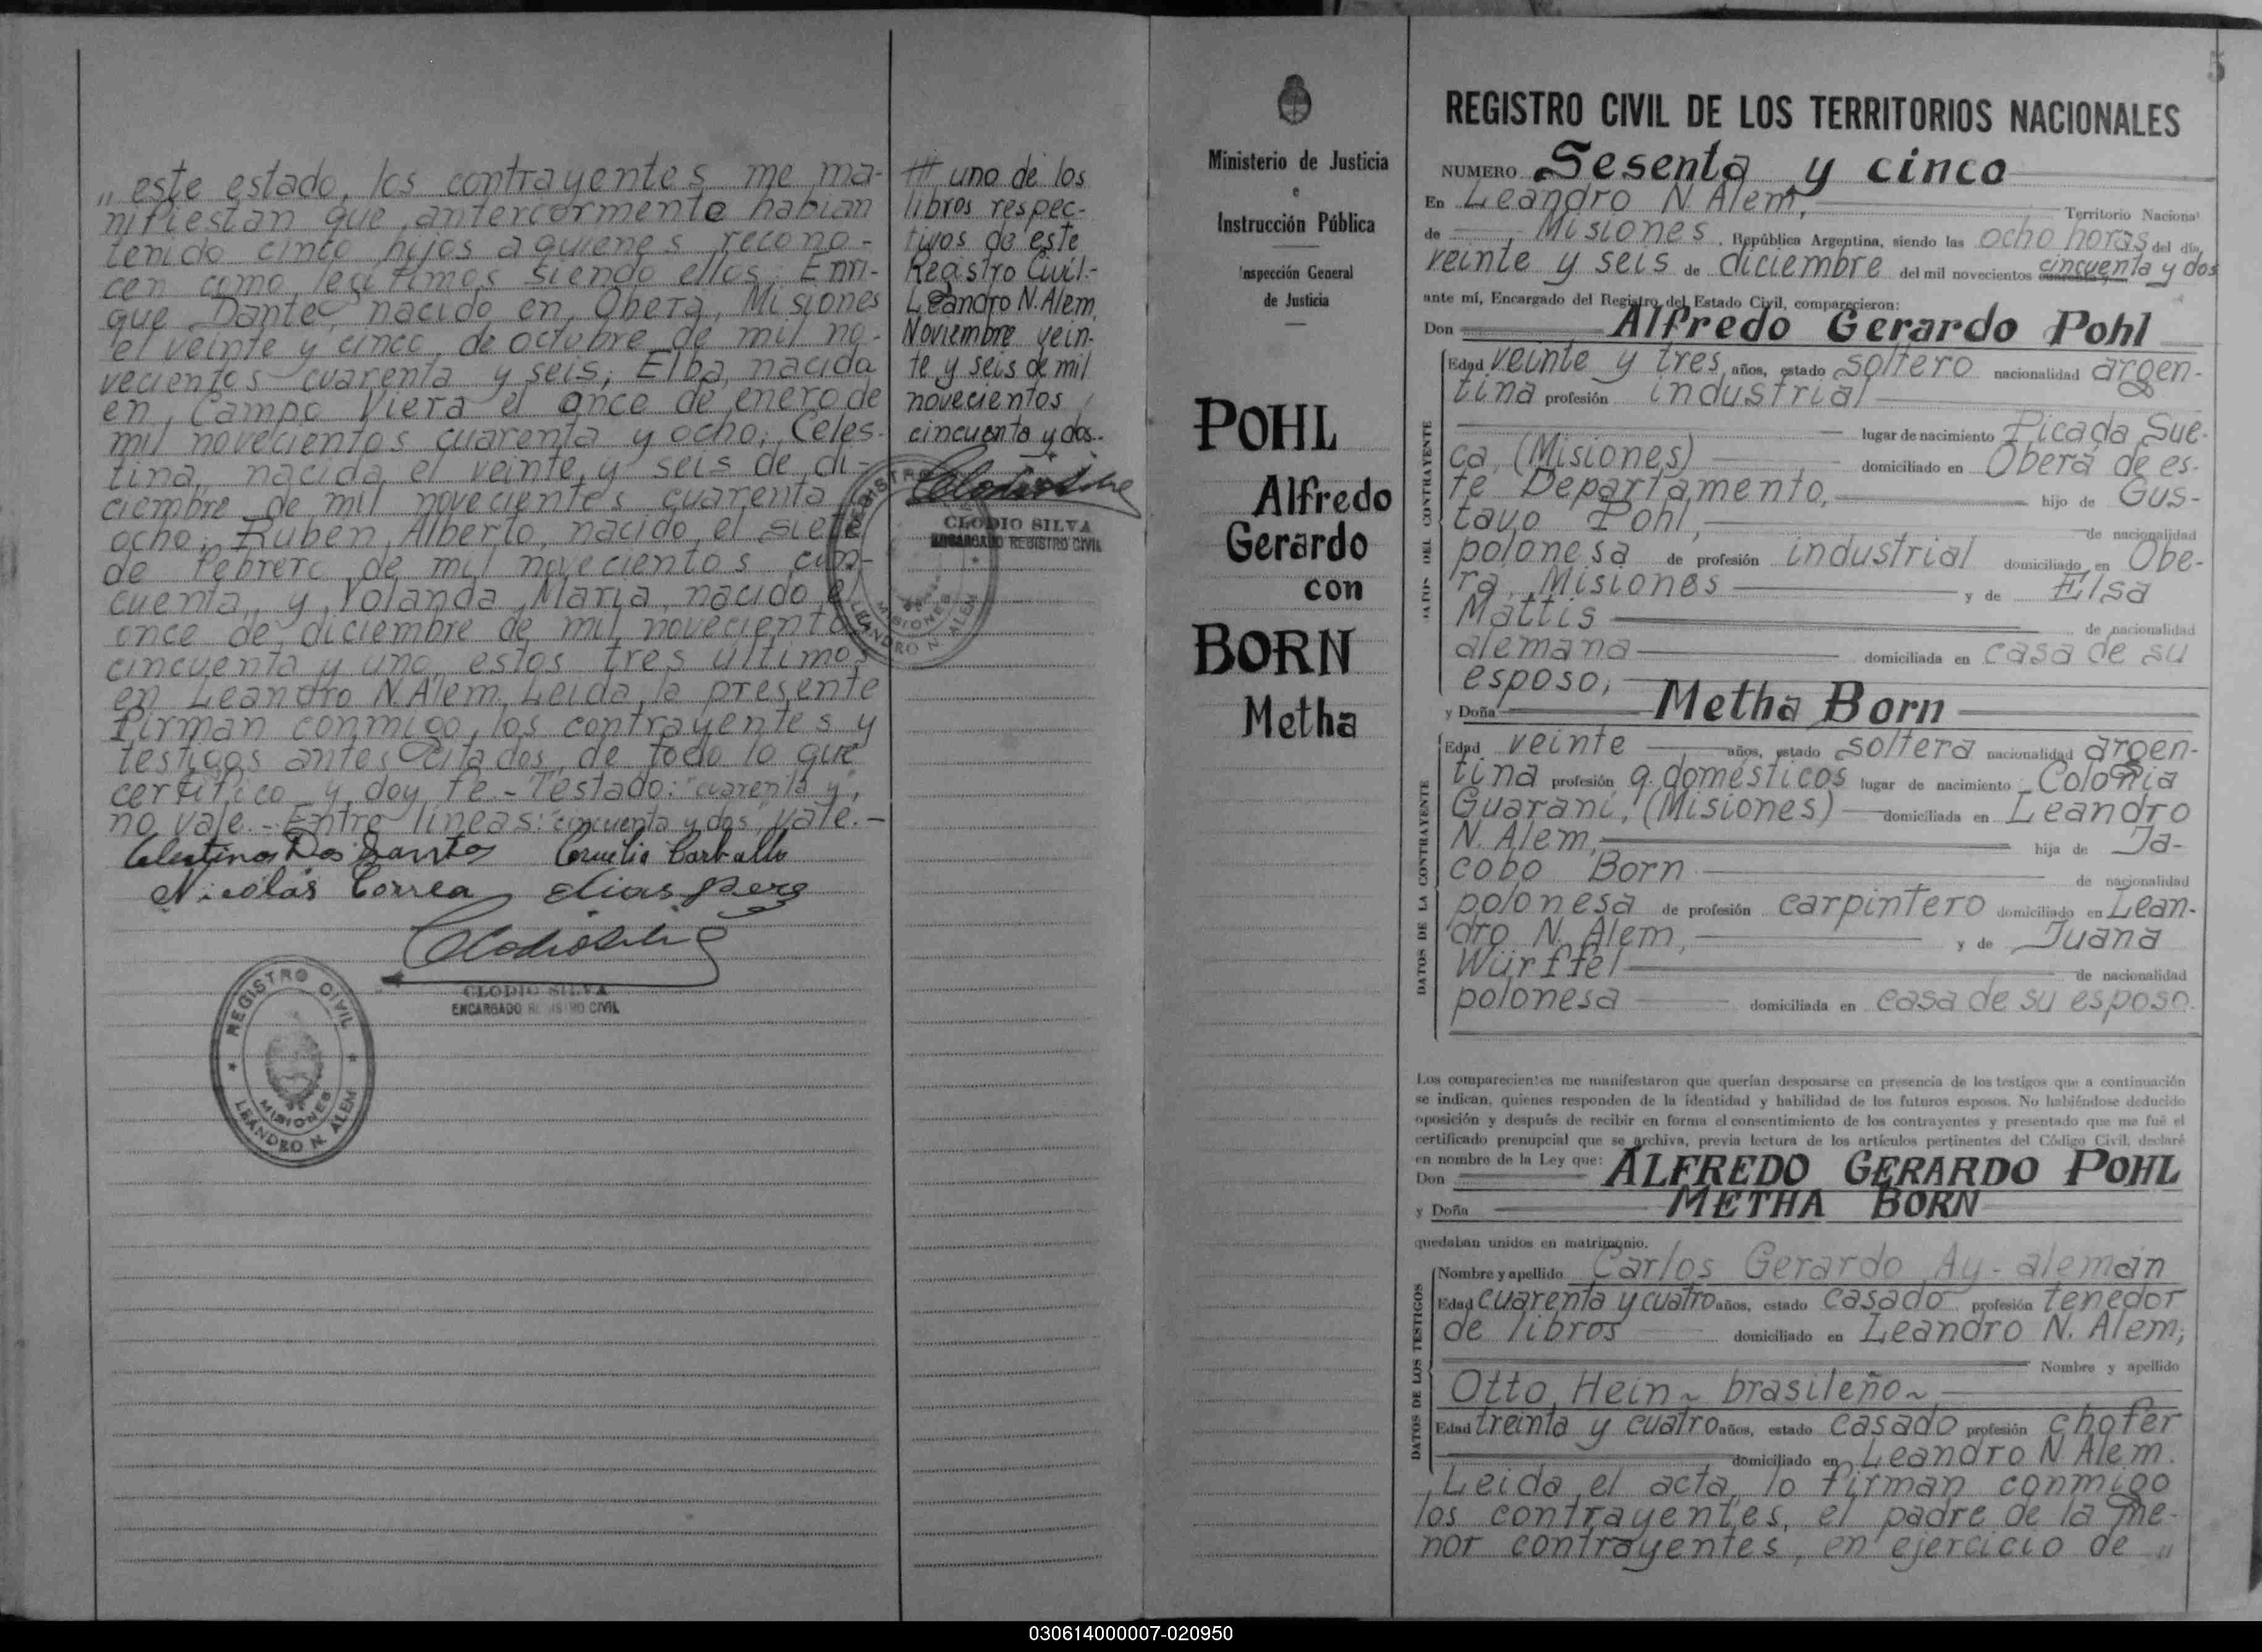 „ este estado, los contrayentes me ma-
nifiestan que anteriormente habian
tenido cinco hijos a quienes recono-
cen como legitimos siendo ellos: Enri-
que Dante, nacido en Oberá, Misiones
el veinte y cinco de octubre de mil no-
vecientos cuarenta y seis; Elba, nacida
en Campo Viera el once de enero de
mil novecientos cuarenta y ocho; Celes-
tina, nacida el veinte y seis de di-
ciembre de mil novecientos cuarenta
ocho; Ruben Alberto, nacido el siete
de febrero de mil novecientos cin-
cuenta, y Yolanda Maria, nacido el
once de diciembre de mil novecientos
cincuenta y uno, estos tres ultimos
en Leandro N. Alem. Leida la presente
firman conmigo los contrayentes y
testigos antes citados, de todo lo que
certifico y doy fe.- Testado: "cuarenta y",
no vale.- Entre lineas: "cincuenta y dos", vale.-
Celestino Dos Santos Cornelia Carballo
Nicolás Correa Elias
CLODIO SILVA
ENCARGADO REGISTRO CIVIL
REGISTRO CIVIL
MISIONES
LEANDRO N. ALEM
## uno de los
libros respec-
tivos de este
Registro Civil.-
Leandro N. Alem,
Noviembre vein-
te y seis de mil
novecientos
cincuenta y dos.-
CLODIO SILVA
ENCARGADO REGISTRO CIVIL
MISIONES
LEANDRO N. ALEM
Ministerio de Justicia
e
Instrucción Pública
Inspección General
de Justicia
POHL
Alfredo
Gerardo
con
BORN
Metha
5
REGISTRO CIVIL DE LOS TERRITORIOS NACIONALES
NUMERO Sesenta y cinco
En Leandro N. Alem, Territorio Nacional
de Misiones, República Argentina, siendo las ocho horas del día
veinte y seis de diciembre del mil novecientos cuarenta y cincuenta y dos
ante mí, Encargado del Registro del Estado Civil, comparecieron:
Don Alfredo Gerardo Pohl
DATOS DEL CONTRAYENTE
Edad veinte y tres años, estado soltero nacionalidad argen-
tina profesión industrial
lugar de nacimiento Picada Sue-
ca, (Misiones) domiciliado en Oberá de es-
te Departamento, hijo de Gus-
tavo Pohl, de nacionalidad
polonesa de profesión industrial domiciliado en Obe-
rá, Misiones y de Elsa
Mattis de nacionalidad
alemana domiciliada en casa de su
esposo;
y Doña Metha Born
DATOS DE LA CONTRAYENTE
Edad veinte años, estado soltera nacionalidad argen-
tina profesión q. domésticos lugar de nacimiento Colonia
Guaraní, (Misiones) domiciliada en Leandro
N. Alem, hija de Ja-
cobo Born de nacionalidad
polonesa de profesión carpintero domiciliado en Lean-
dro N. Alem, y de Juana
Würffel de nacionalidad
polonesa domiciliada en casa de su esposo.
Los comparecientes me manifestaron que querían desposarse en presencia de los testigos que a continuación
se indican, quienes responden de la identidad y habilidad de los futuros esposos. No habiéndose deducido
oposición y después de recibir en forma el consentimiento de los contrayentes y presentado que me fué el
certificado prenupcial que se archiva, previa lectura de los artículos pertinentes del Código Civil, declaré
en nombre de la Ley que:
Don ALFREDO GERARDO POHL
y Doña METHA BORN
quedaban unidos en matrimonio.
DATOS DE LOS TESTIGOS
Nombre y apellido Carlos Gerardo Ay - alemán
Edad cuarenta y cuatro años, estado casado profesión tenedor
de libros domiciliado en Leandro N. Alem;
Nombre y apellido
Otto Hein ~ brasileño ~
Edad treinta y cuatro años, estado casado profesión chofer
domiciliado en Leandro N Alem.
Leida el acta, lo firman conmigo
los contrayentes, el padre de la me-
nor contrayentes, en ejercicio de „
030614000007-020950